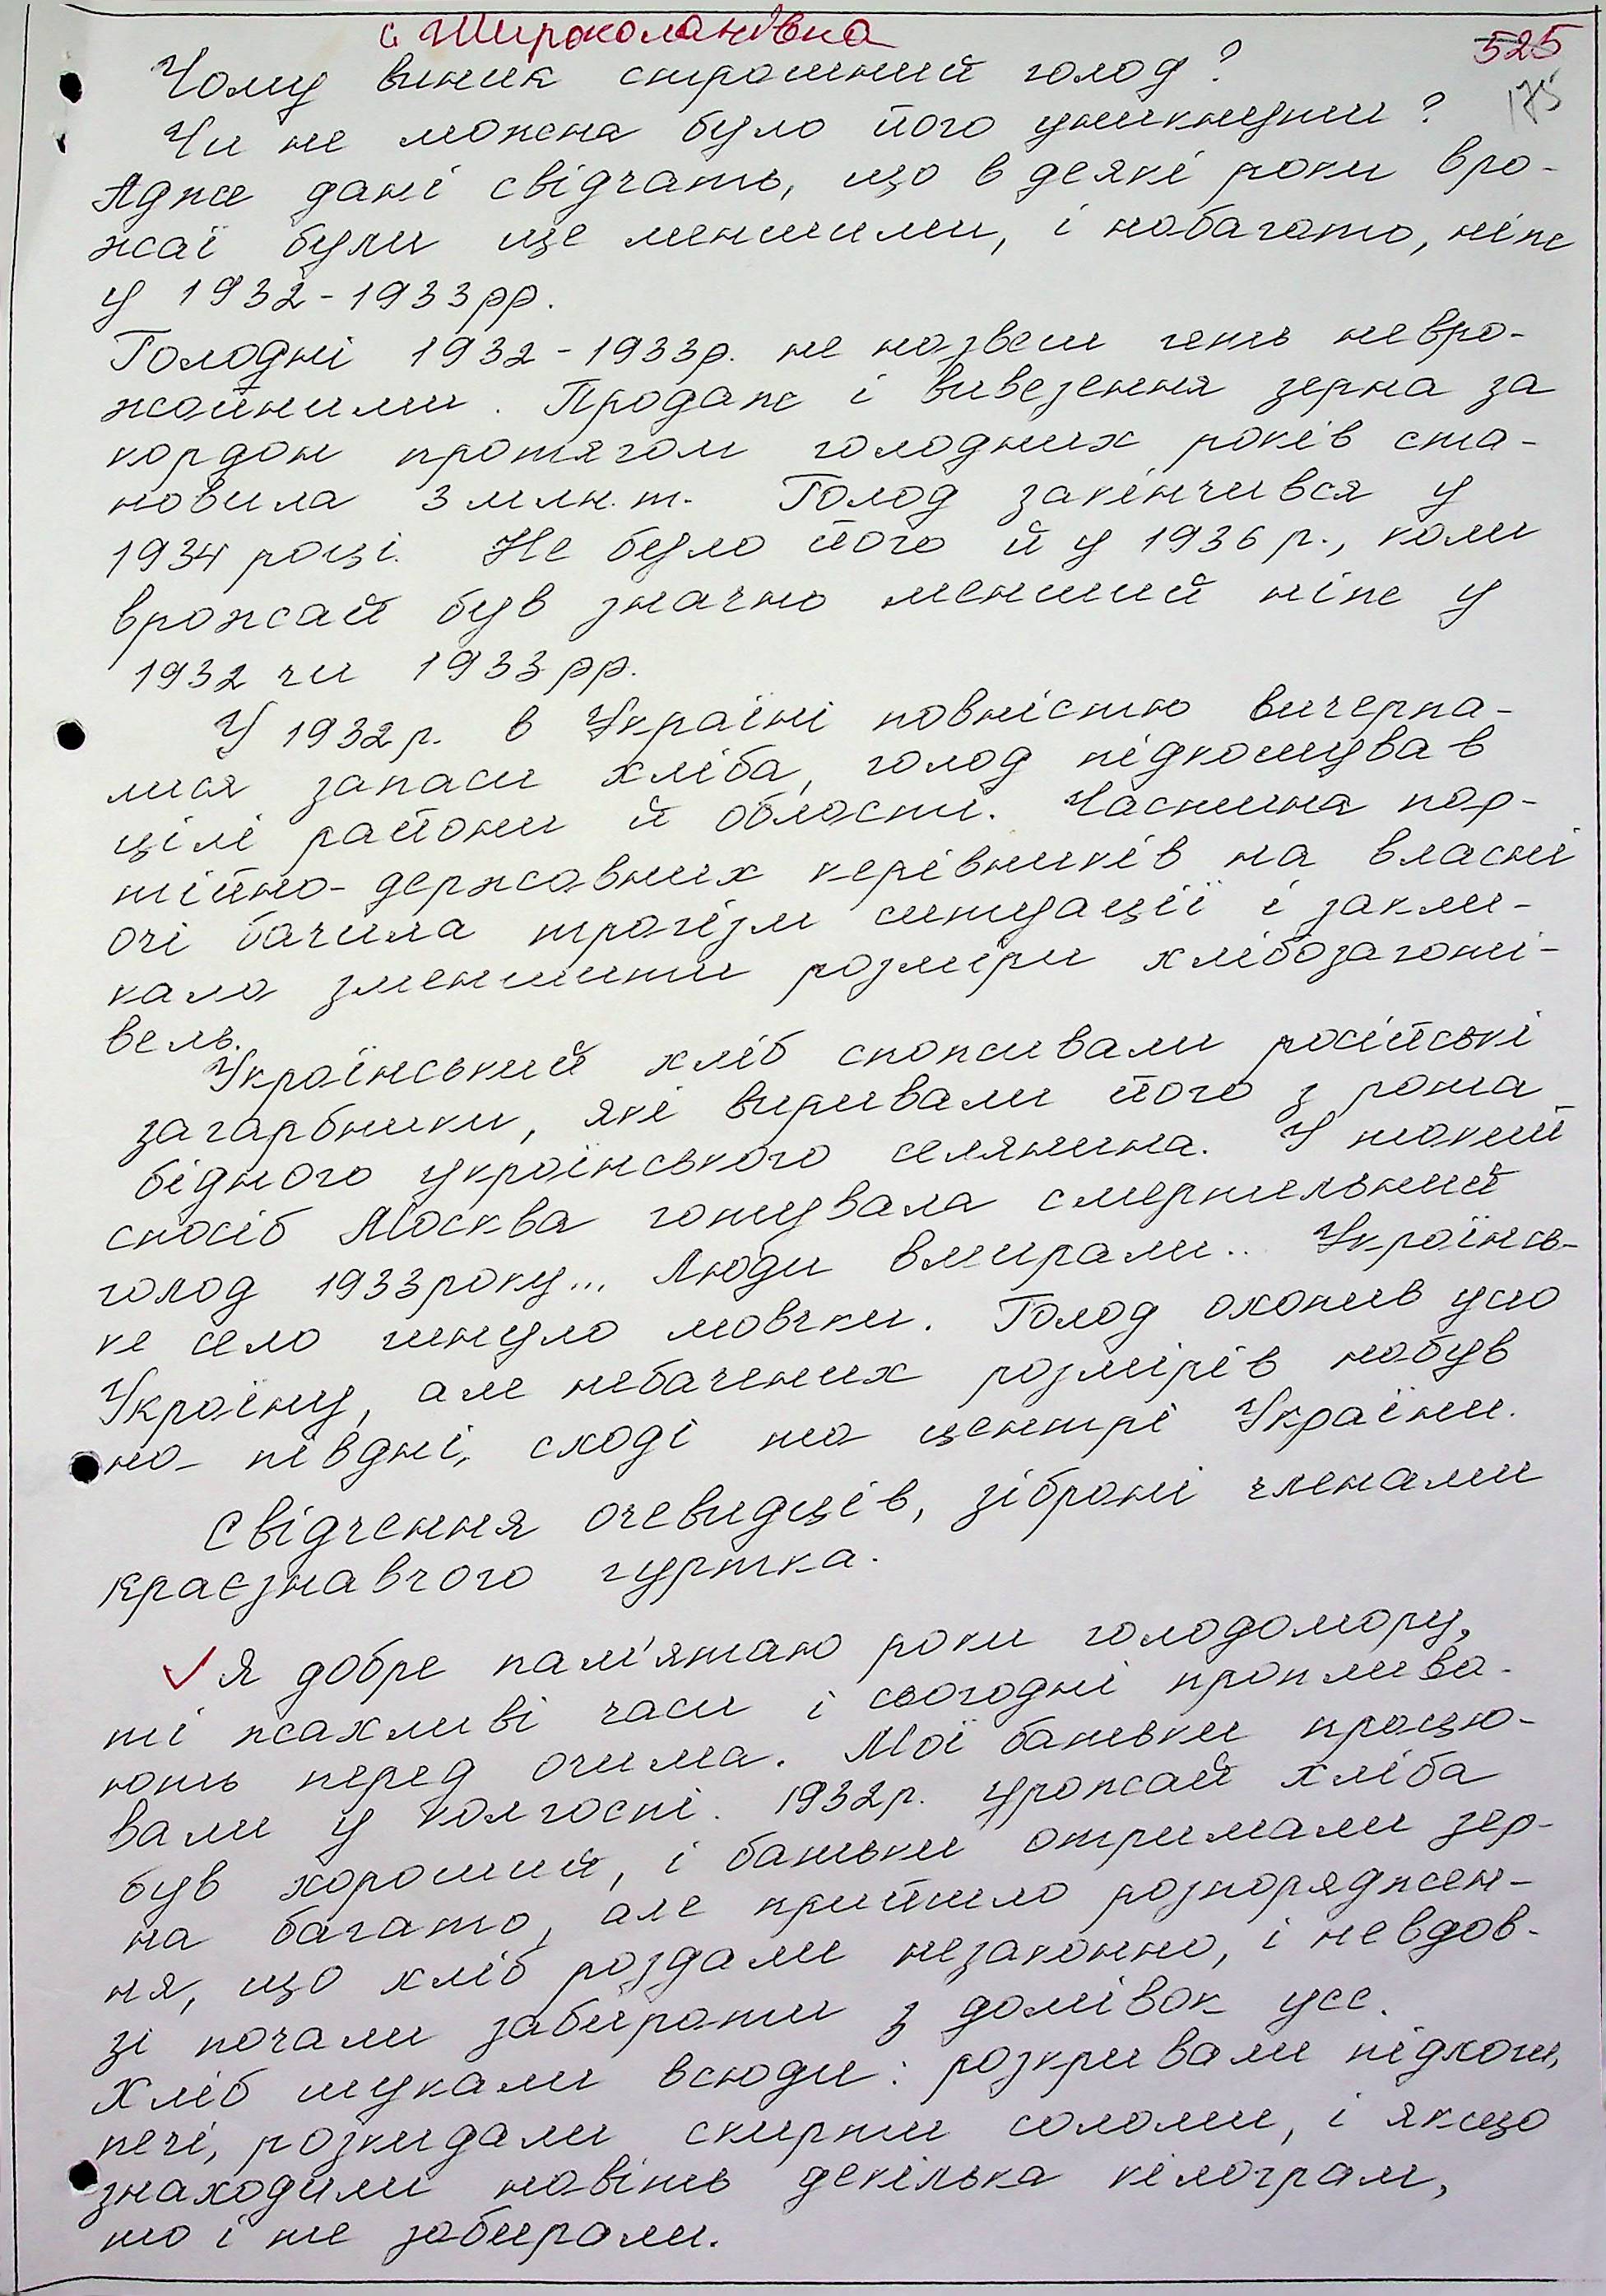 с. Широколанівка
525
175
Чому виник страшний голод?
Чи не можна було його уникнути?
Адже дані свідчать, що в деякі роки вро-
жаї були ще меншими, і набагато, ніж
у 1932-1933рр.
Голодні 1932-1933р. не назвеш геть невро-
жайними. Продаж і вивезення зерна за
кордон протягом голодних років ста-
новила 3 млн. т. Голод закінчився у
1934 році. Не було його й у 1936 р., коли
врожай був значно менший ніж у
1932 чи 1933 рр.
У 1932р. в Україні повністю вичерпа-
лися запаси хліба, голод підкошував
цілі райони й області. Частина пар-
тійно-державних керівників на власні
очі бачила трагізм ситуації і закли-
кала зменшити розміри хлібозаготі-
вель.
Український хліб споживали російські
загарбники, які виривали його з рота
бідного українського селянина. У такий
спосіб Москва готувала смертельний
голод 1933року... Люди вмирали.. Українсь-
ке село гинуло мовчки. Голод охопив усю
Україну, але небачених розмірів набув
на півдні, сході та центрі України.
Свідчення очевидців, зібрані членами
краєзнавчого гуртка.
✓ Я добре пам'ятаю роки голодомору,
ті жахливі часи і сьогодні проплива-
ють перед очима. Мої батьки працю-
вали у колгоспі. 1932р. урожай хліба
був хороший, і батьки отримали зер-
на багато, але прийшло розпоряджен-
ня, що хліб роздали незаконно, і невдов-
зі почали забирати з домівок усе.
Хліб шукали всюди: розкривали підлоги,
печі, розкидали скирти соломи, і якщо
знаходили навіть декілька кілограм,
то і те забирали.